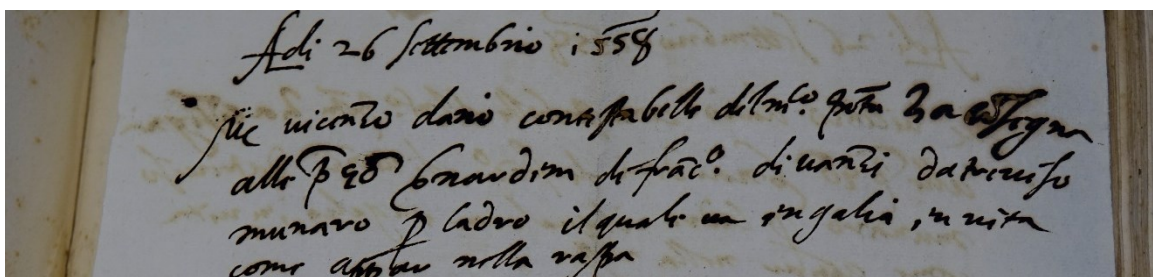 Adi 26 settembrio 1558
vicenzo dario contestabelle del m.co pot.a ha consegna
alle bnardim de franc.o di vanzi da treviso
munaro p ladro il quale va in galia, in vita
come appar nella raspa